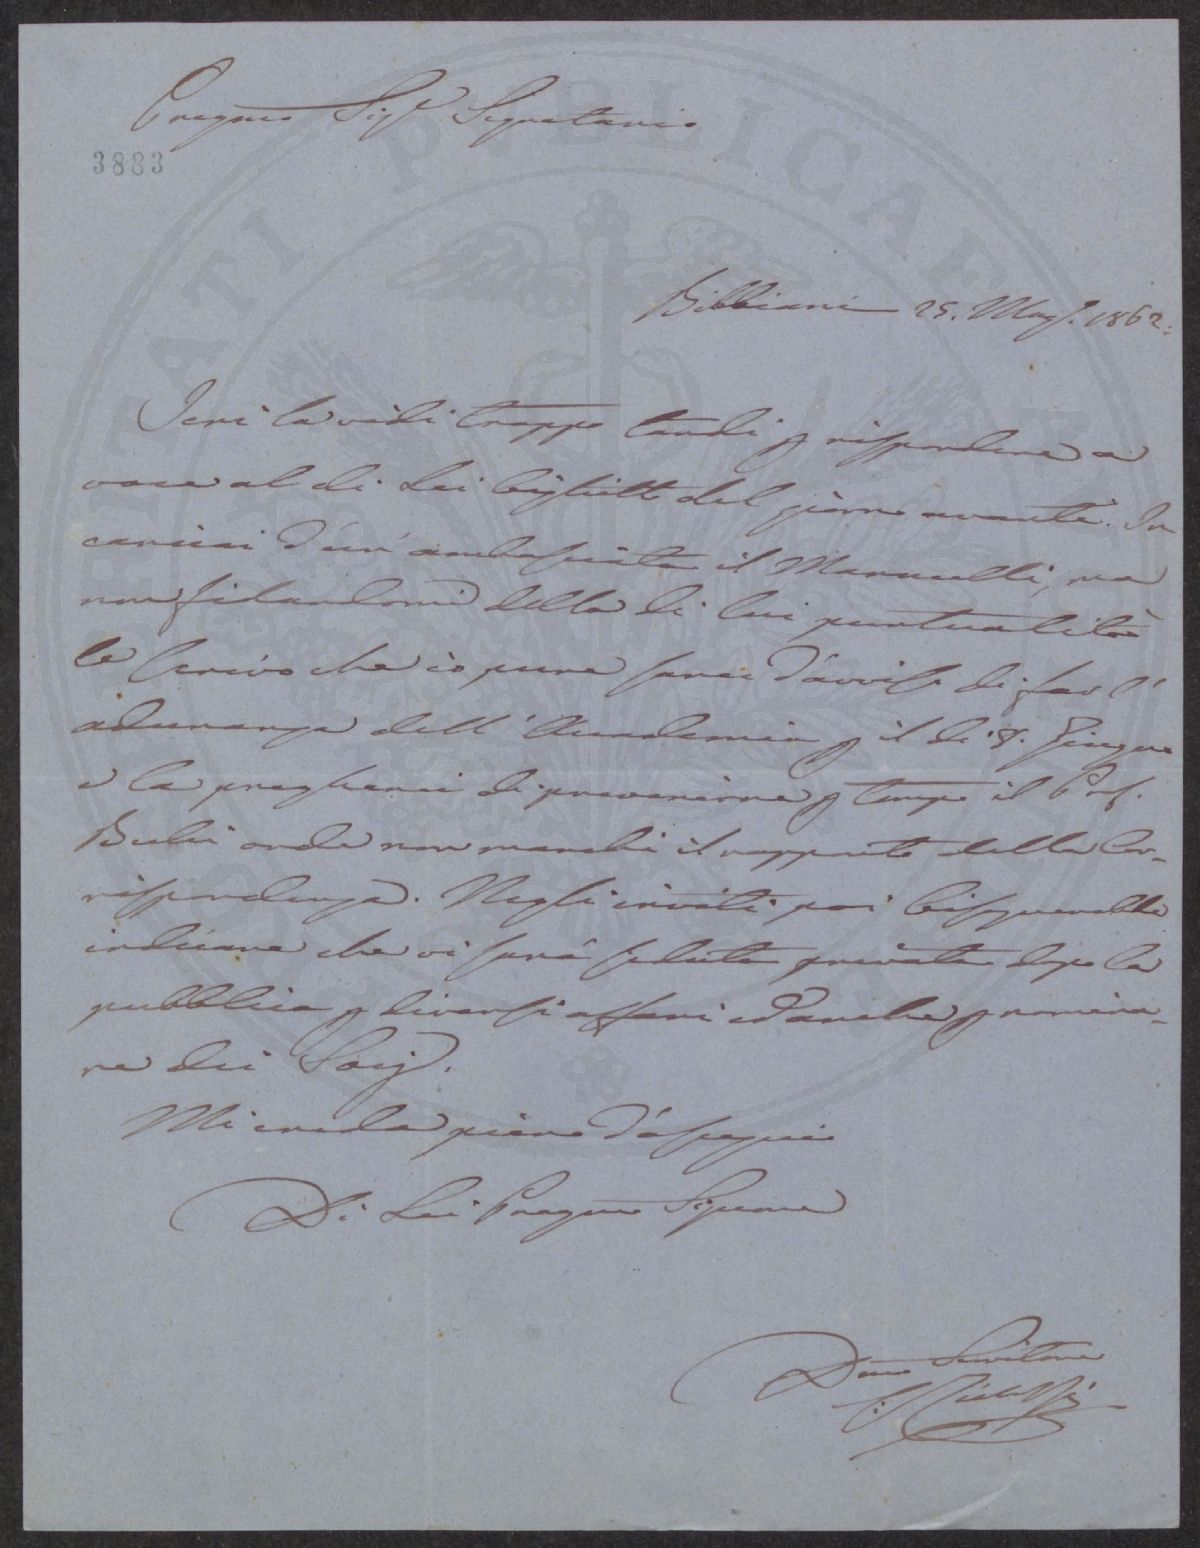 Pregmo Sigr Segretario
3883
Bibbiani 25. Magg. 1862.
Ieri la vidi troppo tardi p rispondere a
voce al di Lei biglietto del giorno avanti. In
caricai d'un ambasciata il Marucelli, ma
non fidandomi della di lui puntualità
le scrivo che io pure sarei d'avviso di far l'
adunanza dell'Accademia p il di 8. Giugno
e la pregherei di prevenirne p tempo il Prof.
onde non manchi il rapporto della Cor-
rispondenza. Negli inviti poi bisognerebbe
indicare che vi sarà seduta privata dopo la
pubblica p diversi affari ed anche p nomina-
re dei Socj.
Mi creda pieno d'ossequio
Di Lei Pregmo Signore
Dmo Servitore
C. Ridolfi